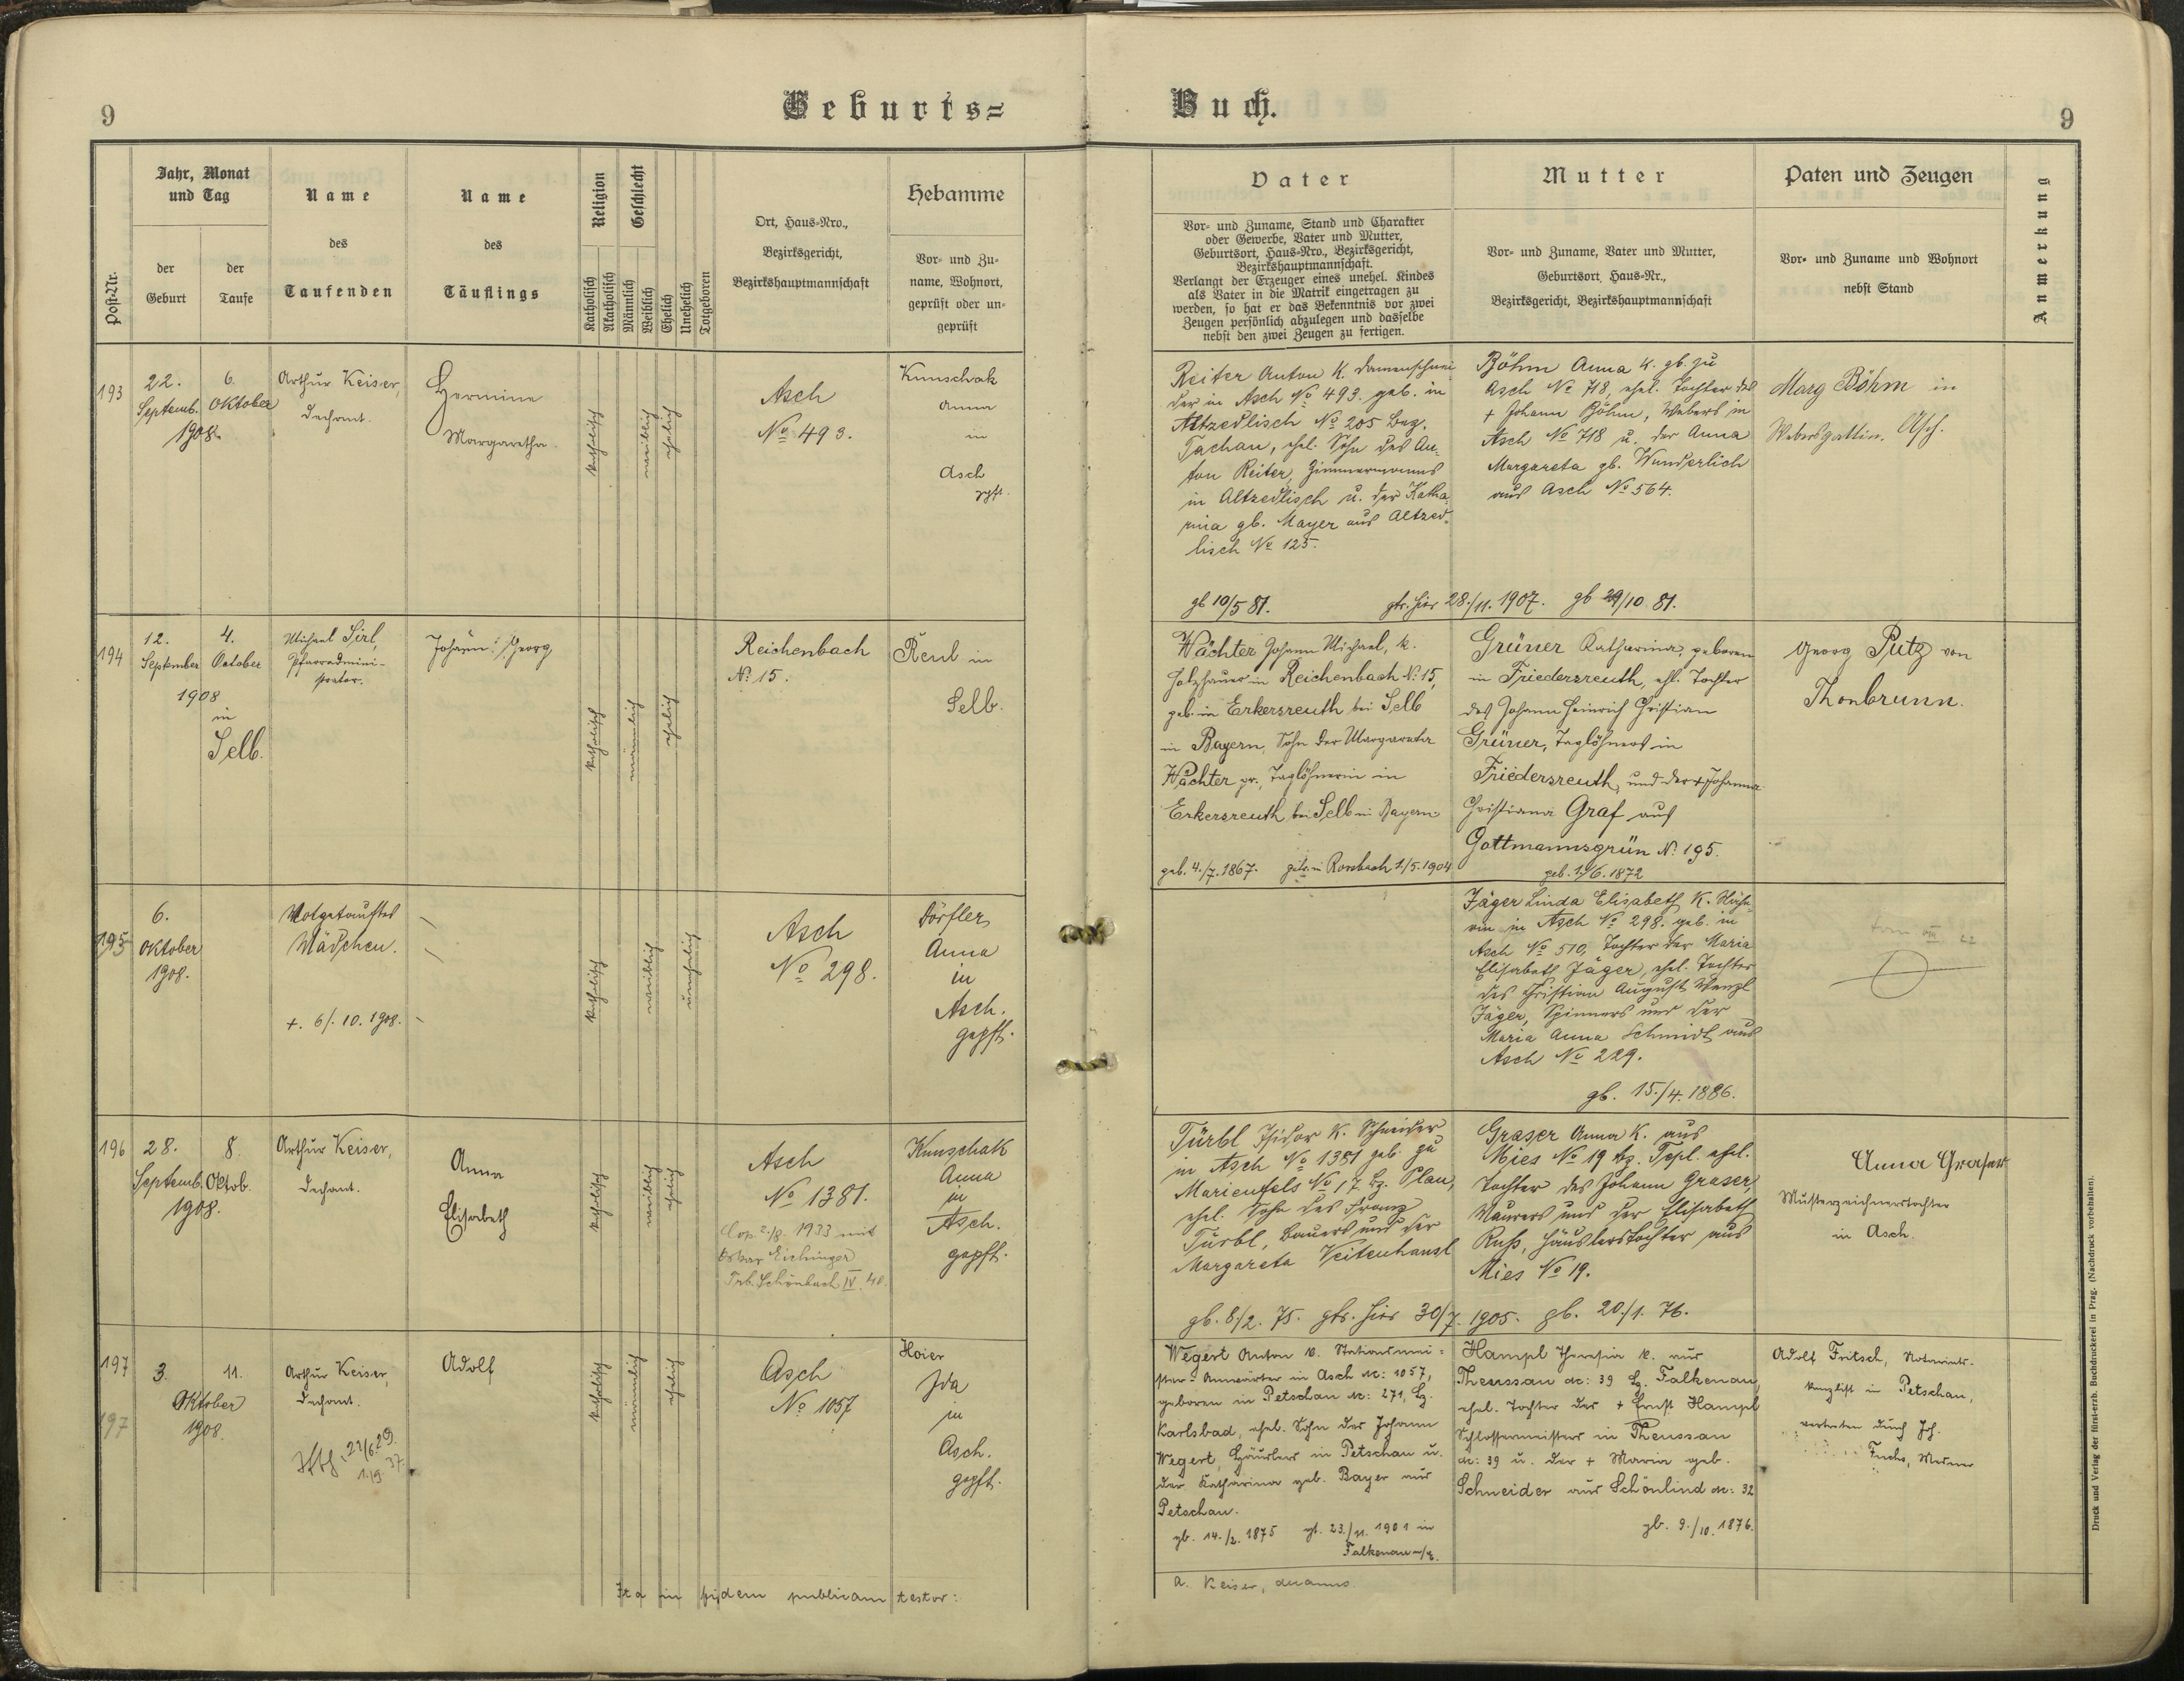 9
Geburts=
Buch.
9
Post-Nr.
Jahr, Monat
und Tag
der
Geburt
der
Taufe
Name
des
Taufenden
Name
des
Täuflings
Religion
Katholisch
Akatholisch
Geschlecht
Männlich
Weiblich
Ehelich
Unehelich
Totgeboren
Ort, Haus-Nro.,
Bezirksgericht,
Bezirkshauptmannschaft
Hebamme
Vor- und Zu-
name, Wohnort,
geprüft oder un-
geprüft
Vater
Vor- und Zuname, Stand und Charakter
oder Gewerbe, Vater und Mutter,
Geburtsort, Haus-Nro., Bezirksgericht,
Bezirkshauptmannschaft.
Verlangt der Erzeuger eines unehel. Kindes
als Vater in die Matrik eingetragen zu
werden, so hat er das Bekenntnis vor zwei
Zeugen persönlich abzulegen und dasselbe
nebst den zwei Zeugen zu fertigen.
Mutter
Vor- und Zuname, Vater und Mutter,
Geburtsort, Haus-Nr.,
Bezirksgericht, Bezirkshauptmannschaft
Paten und Zeugen
Vor- und Zuname und Wohnort
nebst Stand
Anmerkung
193
22.
Septemb.
1908.
6.
Oktober
Arthur Keiser,
Dechant.
Hermine
Margaretha
katholisch
weiblich
ehelich
Asch
No 493.
Kunschak
Anna
in
Asch
gpft.
Reiter Anton K. Damenschnei-
der in Asch No 493. geb. in
Altzedlisch No 205 Bez.
Tachau, ehel. Sohn des An-
ton Reiter, Zimmermanns
in Altzedlisch u. der Katha-
rina gb. Mayer aus Altzed-
lisch No 125.
gb 10/5 81.
gtr. hier 28./11. 1907.
Böhm Anna K. gb. zu
Asch No 718, ehel. Tochter des
+ Johann Böhm, Webers in
Asch No 718 u. der Anna
Margareta gb. Wunderlich
aus Asch No 564.
gb 29/10 81.
Marg Böhm in
Webersgattin. Asch.
194
12.
September
4.
October
1908
in
Selb.
Michael Sirl,
Pfarradmini-
strator.
Johann Georg
katholisch
männlich
ehelich
Reichenbach
No 15.
Reul in
Selb.
Wächter Johann Michael, k.
Holzhauer in Reichenbach No 15,
geb. in Erkersreuth bei Selb
in Bayern, Sohn der Margareta
Wächter pr., Taglöhnerin in
Erkersreuth bei Selb in Bayern
geb. 4./7. 1867. getr. in Rossbach 1./5. 1904
Grüner Katharina, geboren
in Friedersreuth, ehl. Tochter
des Johann Heinrich Christian
Grüner, Taglöhners in
Friedersreuth, und der + Johanna
Christiana Graf aus
Gottmannsgrün No 195.
geb. 1./6. 1872
Georg Putz von
Thonbrunn.
195
6.
Oktober
1908.
Notgetauftes
Mädchen.
+. 6/. 10. 1908.
katholisch
weiblich
unehelich
Asch
No 298.
Dörfler
Anna
in
Asch.
gepft.
Jäger Linda Elisabeth K. Nähe-
rin in Asch No 298. geb. in
Asch No 510, Tochter der Maria
Elisabeth Jäger, ehel. Tochter
des Christian August Wenzl
Jäger, Spinners und der
Maria Anna Schmidt aus
Asch No 229.
gb. 15./4. 1886.
196
28.
Septemb.
1908.
8.
Oktob.
Arthur Keiser,
Dechant.
Anna
Elisabeth
katholisch
weiblich
ehelich
Asch
No 1381.
Cop. 2./8. 1933 mit
Oskar Eichinger
Trb. Schönbach IV. 40.
Kunschak
Anna
in
Asch.
gepft.
Türbl Isidor K. Schneider
in Asch No 1381 geb. zu
Marienfels No 17 Bz. Plan,
ehel. Sohn des Franz
Türbl, Bauers und der
Margareta Veitenhansl
gb. 8/2. 75. gtr. hier 30/7. 1905.
Graser Anna K. aus
Mies No 19 Bz. Tepl. ehel.
Tochter des Johann Graser,
Maurers und der Elisabeth
Ruß, Häuslerstochter aus
Mies No 19.
gb. 20./1. 76.
Anna Graser
Musterzeichnerstochter
in Asch.
197
197
3.
11.
Oktober
1908.
Arthur Keiser,
Dechant.
22/6 29.
1./9. 37.
Adolf
katholisch
männlich
ehelich
Asch
No 1057
Hoier
Ida
in
Asch.
gepft.
Wegert Anton K. Stationsmei-
ster-Anwärter in Asch Nr: 1057,
geboren in Petschau Nr: 271, Bz.
Karlsbad, ehel. Sohn des Johann
Wegert, Häuslers in Petschau u.
der Katharina geb. Bayer aus
Petschau.
gb. 14./2. 1875 gt. 23./11. 1901 in
Falkenau a/E.
Hampl Theresia K. aus
Theussau Nr: 39 Bz. Falkenau,
ehel. Tochter des + Ernst Hampl
Schlossermeisters in Theussau
Nr: 39 u. der + Maria geb.
Schneider aus Schönlind Nr: 32
gb. 9./10. 1876.
Adolf Fritsch, Notariats-
kanzlist in Petschau,
vertreten durch Joh.
Fuchs, Mesner
Ita in fidem publicam testor:
A. Keiser, decanus.
Druck und Verlag der fürst-erzb. Buchdruckerei in Prag. (Nachdruck vorbehalten).